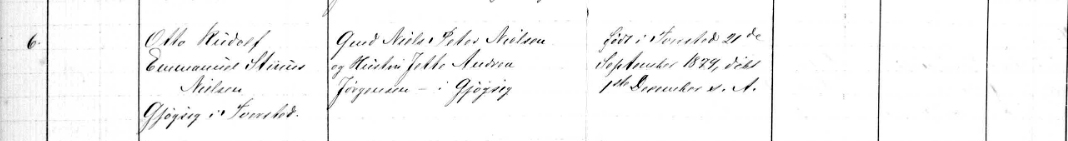 6.
Otto Rudolf
Emmanuel Stinus
Nielsen
Gjøgsig i Tversted.
Gmd Niels Peter Nielsen
og Hustru Jette Andrea
Jørgensen – i Gjøgsig
født i Tversted 21de
September 1879, døbt
1ste December s. A.